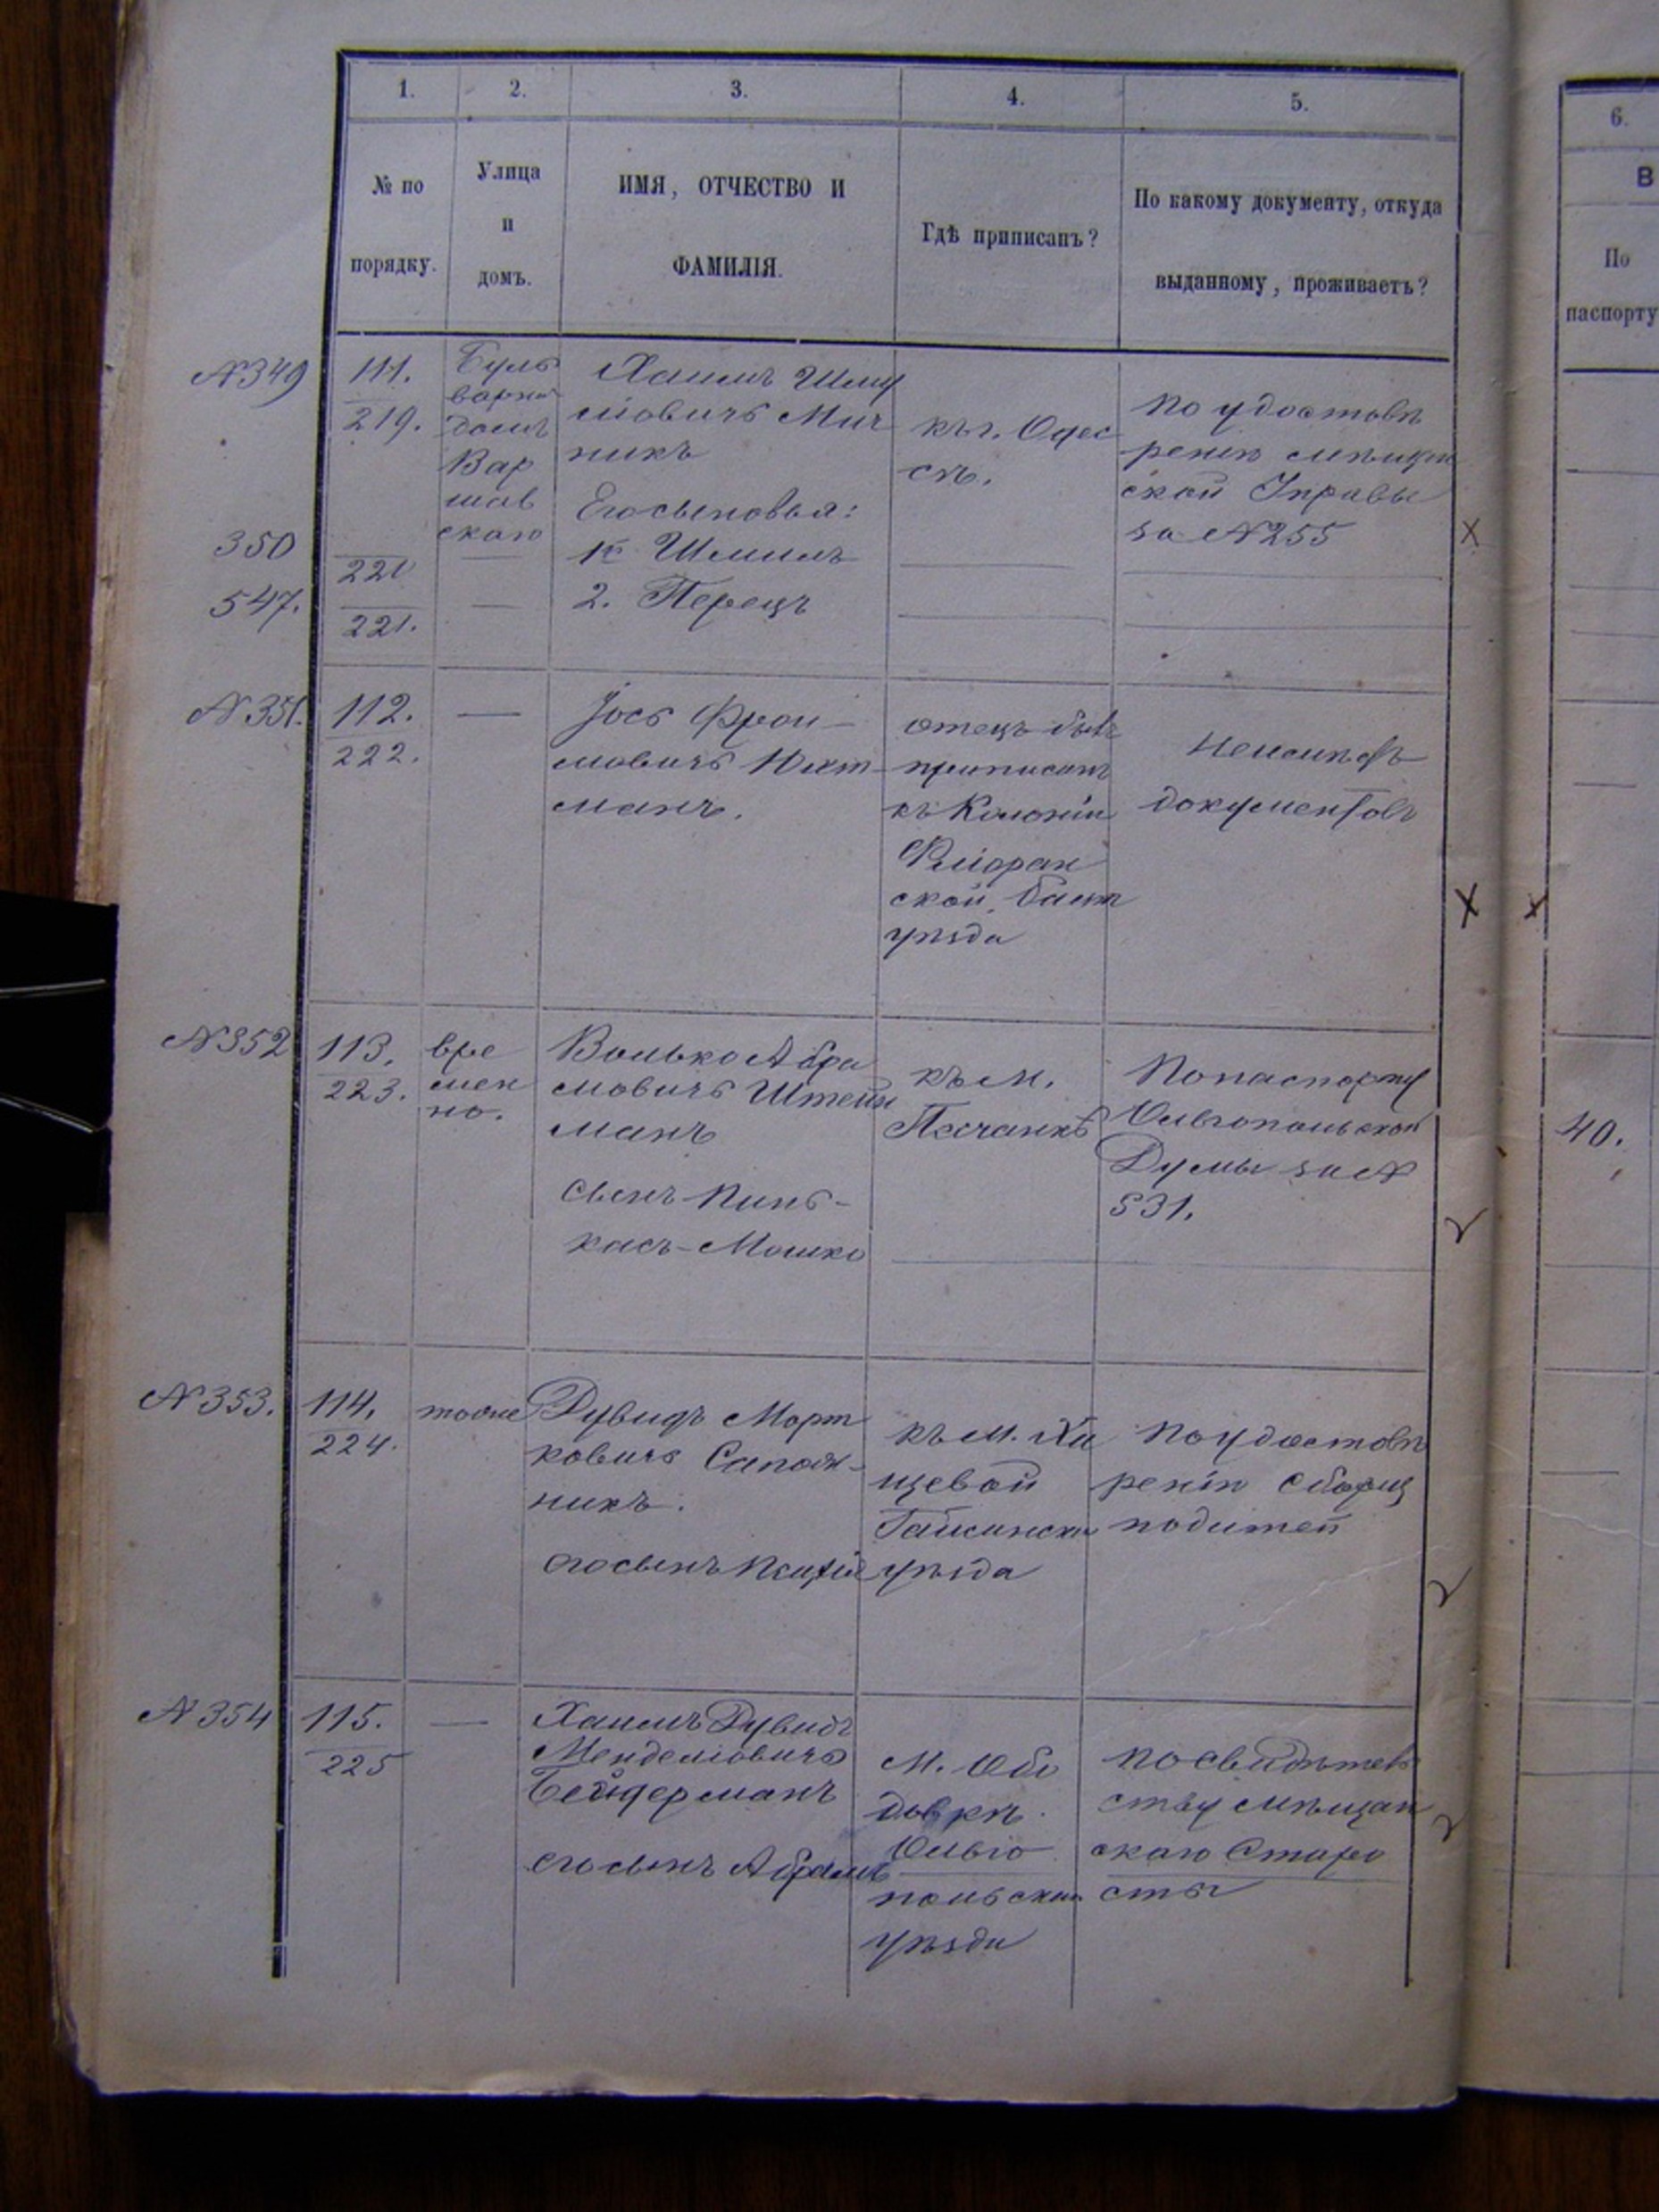 1.
2.
3.
4.
5.
6.
№ по
порядку.
Улица
и
домъ.
ИМЯ, ОТЧЕСТВО И
ФАМИЛІЯ.
Гдѣ приписанъ?
По какому документу, откуда
выданному, проживаетъ?
В
По
паспорту
№349
111.
219.
Буль
варная
домъ
Вар
шав
скаго
Хаимъ Шму
ліовичъ Мич
никъ
къ г. Одес
сѣ.
По удостовѣ
ренію мѣщан
ской Управы
за №255
Его сыновья:
350
220
1. Шлиомъ
547.
221.
2. Перецъ
№351.
112.
222.
Іось Фрои-
мовичъ Юхт-
манъ.
отецъ былъ
приписанъ
къ Колоніи
ской, Балт
уѣзда
Неимѣетъ
документовъ
№352
113.
223.
вре
мен
но.
Волько Абра
мовичъ Штейн
манъ
къ м.
Песчанкѣ
По паспорту
Ольгопольской
Думы за №
531.
сынъ Пинь-
касъ-Мошко
40.
№353.
114.
224.
тоже
Дувидъ Морт
ковичъ Сапож-
никъ.
къ м. Хи
щевой
Гайсинска
уѣзда
По удостовѣ
ренію сборщ
податей
его сынъ
№354
115.
225
Хаимъ Дувидъ
Менделіовичъ
Бейдерманъ
М. Обо
довкѣ
Ольго
польскаго
уѣзда
По свидѣтель
ству мѣщан
скаго Старо
сты
его сынъ Абрамъ